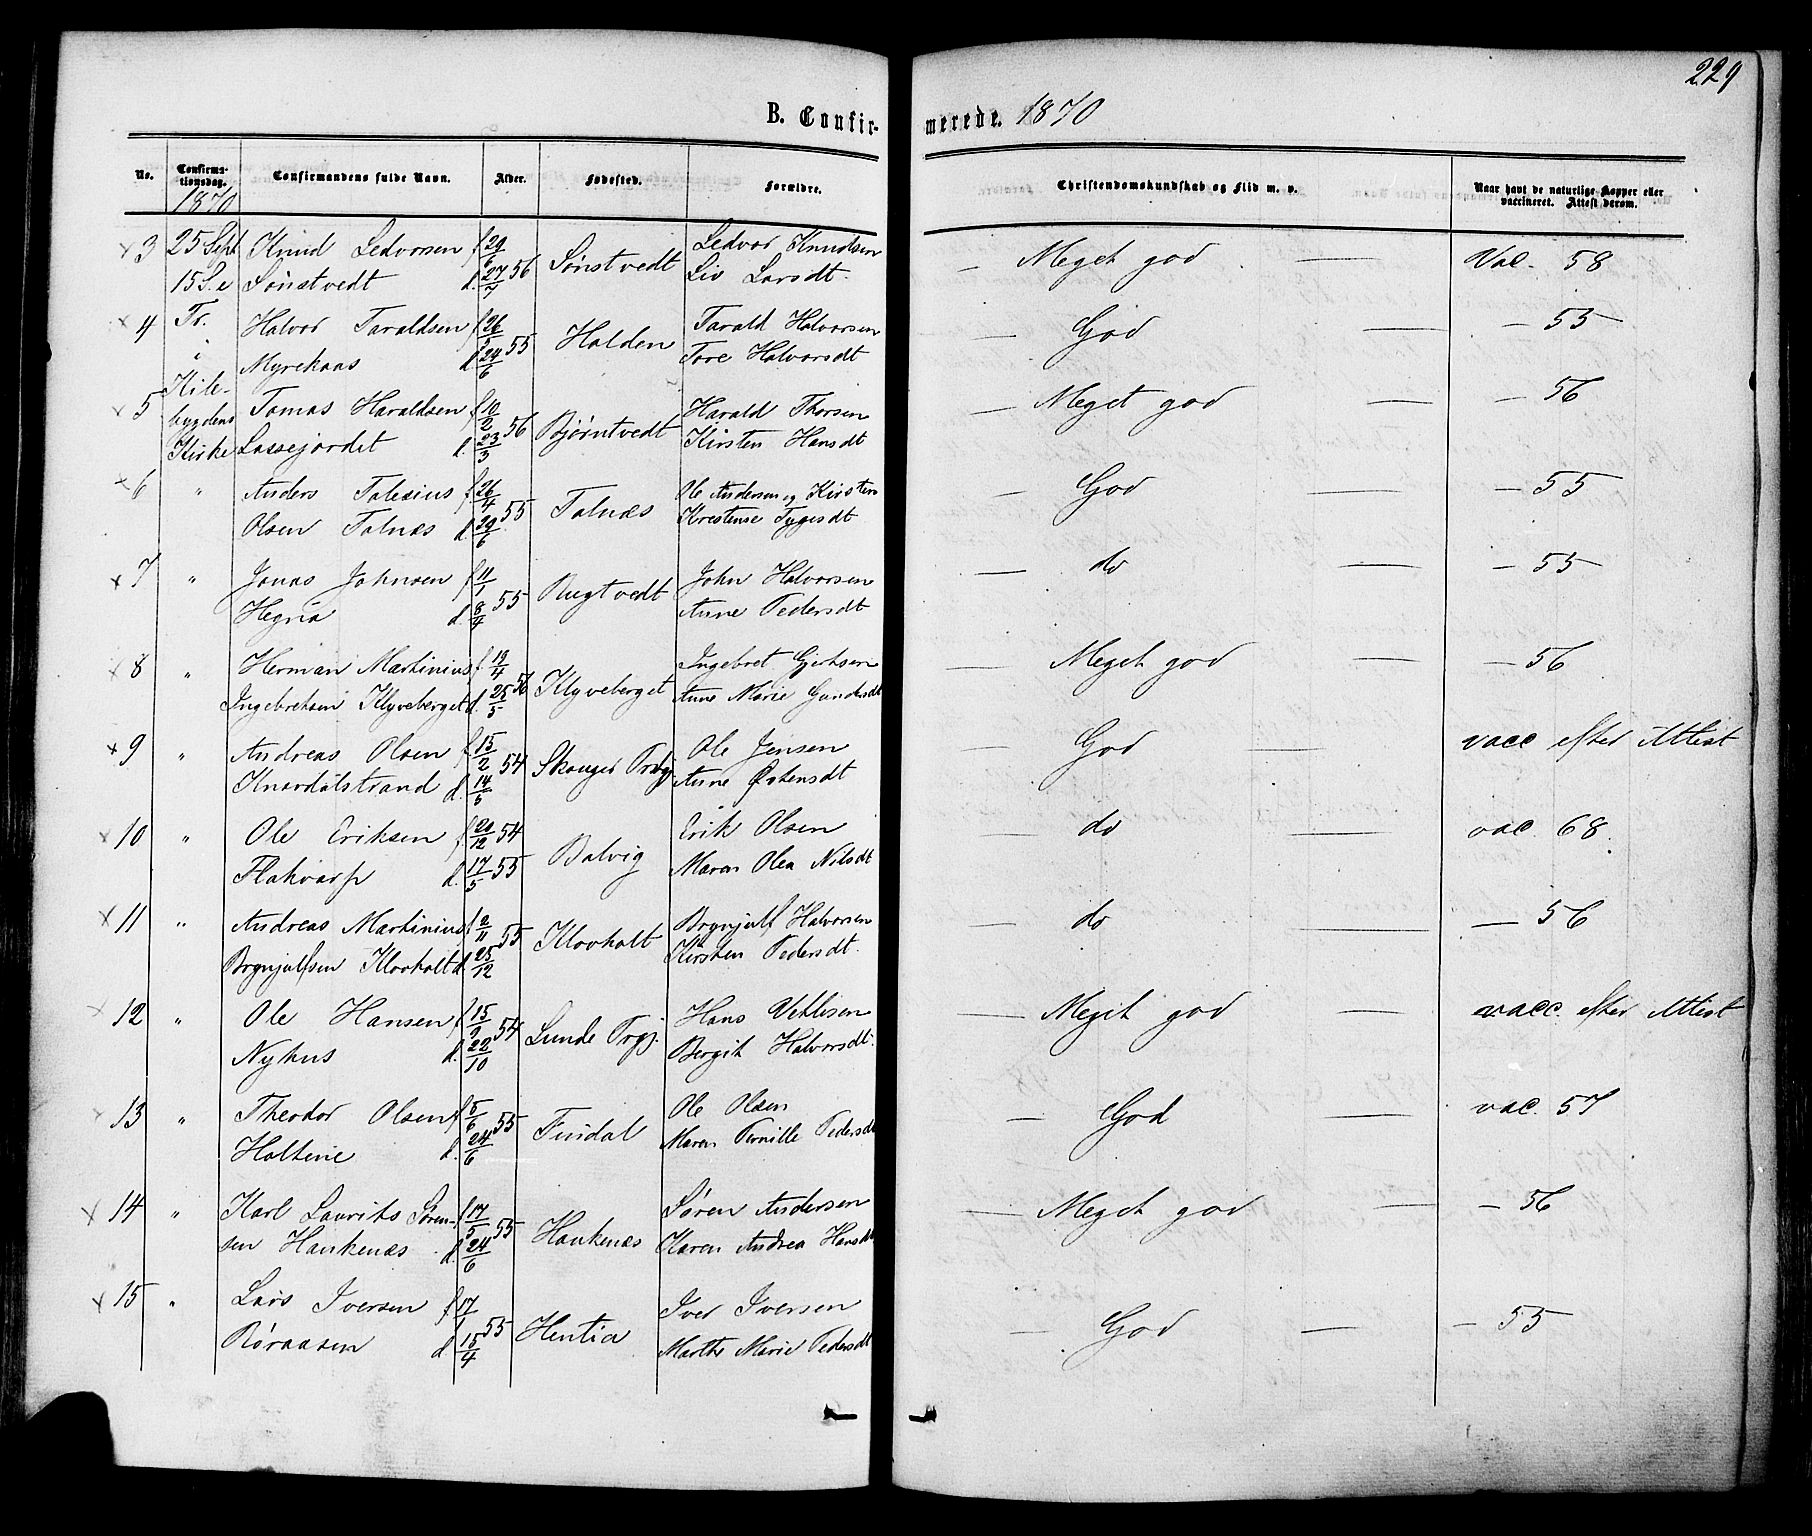 229
B. Confir- merede. 1870
No. Confirmationsdag. Confirmandens fulde Navn. Alder. Fødested. Forældre. Christendomskundskab og Flid m. v. Naar havt de naturlige Kopper eller vaccineret. Attest derom.
1870
3 25 Sept Knud Ledvorsen f 29/6 56 Sønstvedt Ledvor Knudsen — Meget god — Vac. 58
15 S. e Sønstvedt d. 27/7 Liv Larsdt.
4 Tr. Halvor Taraldsen f 26/5 55 Holden Tarald Halvorsen — God — — 55
i Myrekaas d 24/6 Tore Halvorsdt
5 Kile- Tomas Haraldsen f 10/2 56 Bjørntvedt Harald Thorsen — Meget god — — 56
bygdens Lassejordet d. 23/3 Kirsten Hansdt
Kirke
6 " Anders Talesius f 26/4 55 Talnæs Ole Andersen og Kirsten — God — — 55
Olsen Talnæs d. 29/6 Krestense Tygesdt
7 " Jonas Johnsen f 11/1 55 Rugtvedt John Halvorsen — do — — 55
Hegna d. 8/4 Anne Pedersdt
8 " Herman Martinius f. 19/4 56 Klyveberget Ingebret Gjertsen — Meget god — — 56
Ingebretsen Klyveberget d. 25/5 Anne Marie Gundersdt
9 " Andreas Olsen f 15/2 54 Skauger Prgj. Ole Jensen — God — vacc efter Attest
Knardalstrand d. 14/5 Anne Østensdt
10 " Ole Eriksen f. 20/12 54 Balvig Erik Olsen — do — vac. 68
Flakvarp d. 17/5 55 Maren Olea Nilsdt
11 " Andreas Martinius f 2/11 55 Klovholt Brynjulf Halvorsen — do — — 56
Brynjulfsen Klovholt d. 25/12 Kirsten Pedersdt.
12 " Ole Hansen f 15/9 54 Lunde Prgj. Hans Vetlesen — Meget god — vacc. efter Attest
Nyhus d. 22/10 Bergit Halvorsdt.
13 " Theodor Olsen f 5/6 55 Findal Ole Olsen — God — vac. 57
Holteie d. 24/6 Maren Pernille Pedersdt
14 " Karl Laurits Søren- f 17/5 55 Haukenæs Søren Andersen — Meget god — — 56
sen Haukenæs d. 24/6 Karen Andrea Hansdt
15 " Lars Iversen f 17/1 55 Hentia Iver Iversen — God — — 55
Røraasen d 15/4 Marthe Marie Pedersdt